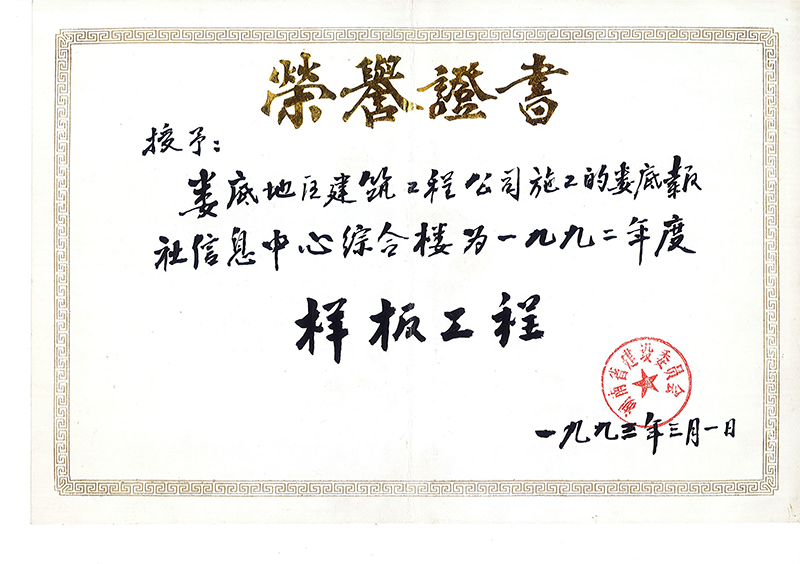 榮譽證書
授予：
娄底地区建筑工程公司施工的娄底報
社信息中心综合楼为一九九二年度
样板工程
湖南省建设委员会
一九九三年三月一日